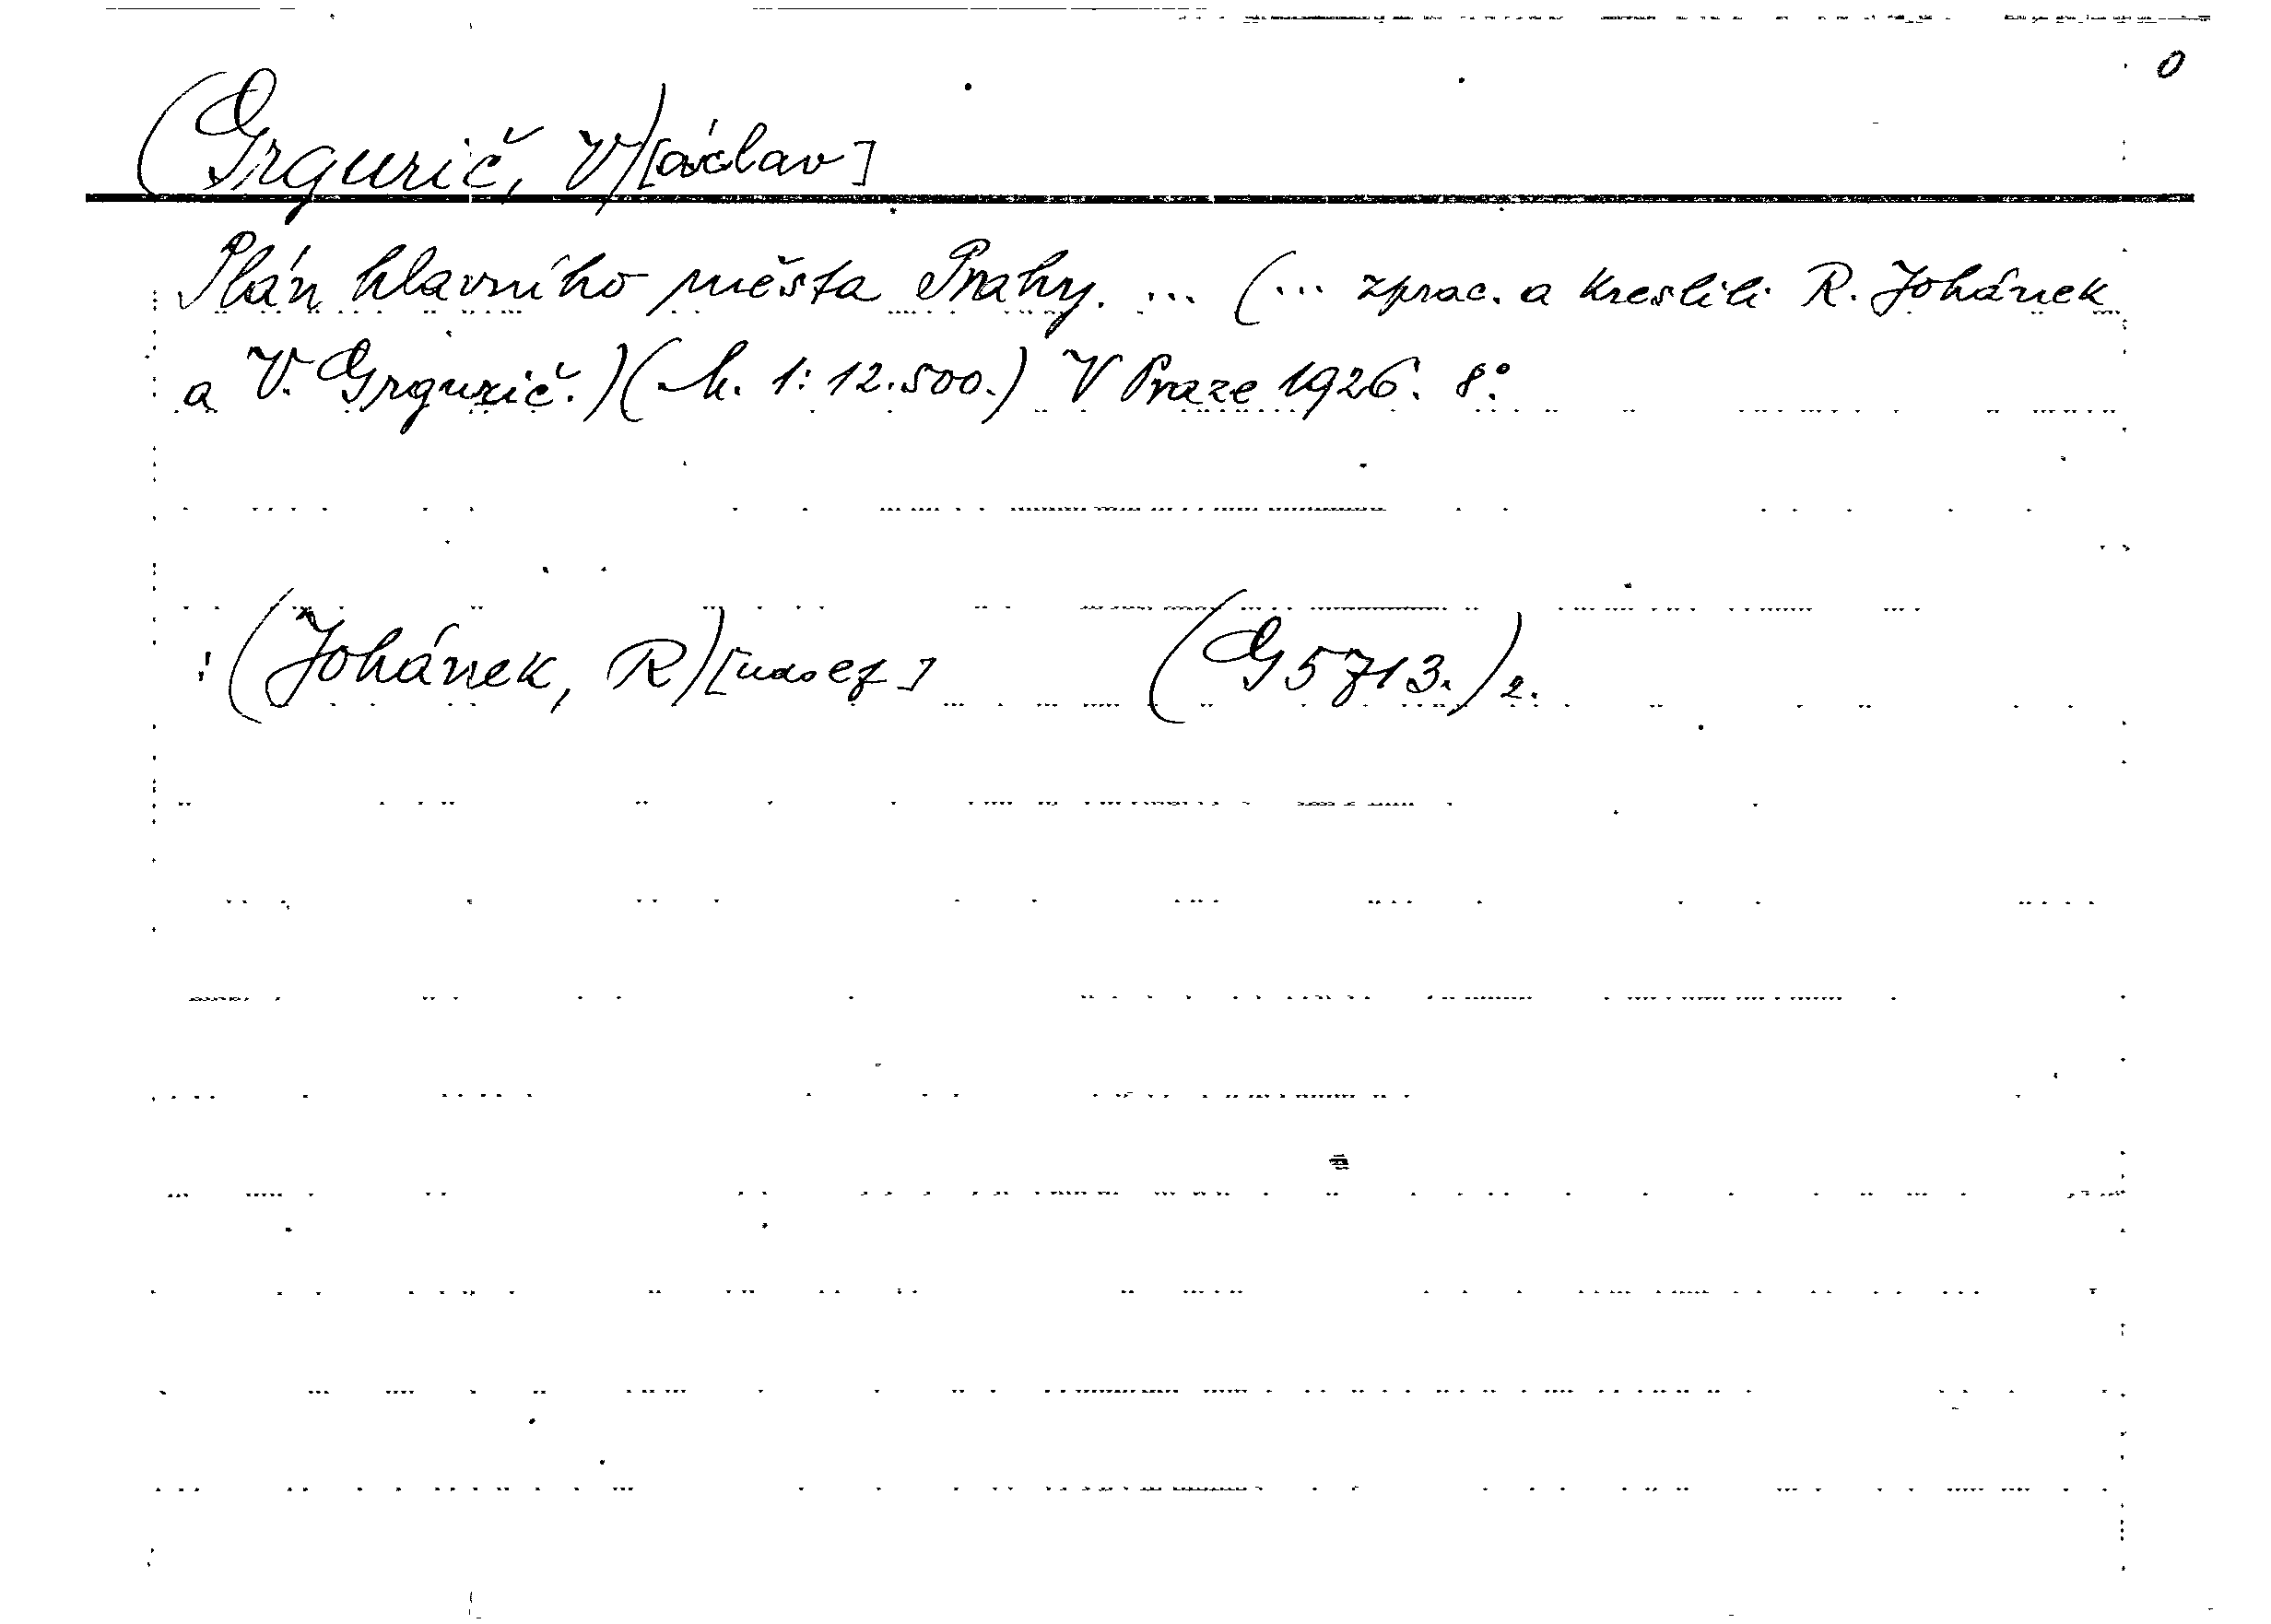 0
(Grgurič, V)[áclav]
Plán hlavního města Prahy. ... (... zprac. a kreslili R. Johánek
a V. Grgurič.) (M. 1:12.500.) V Praze 1926. 8°.
: (Johánek, R)[udolf] (G 5713.) 2.